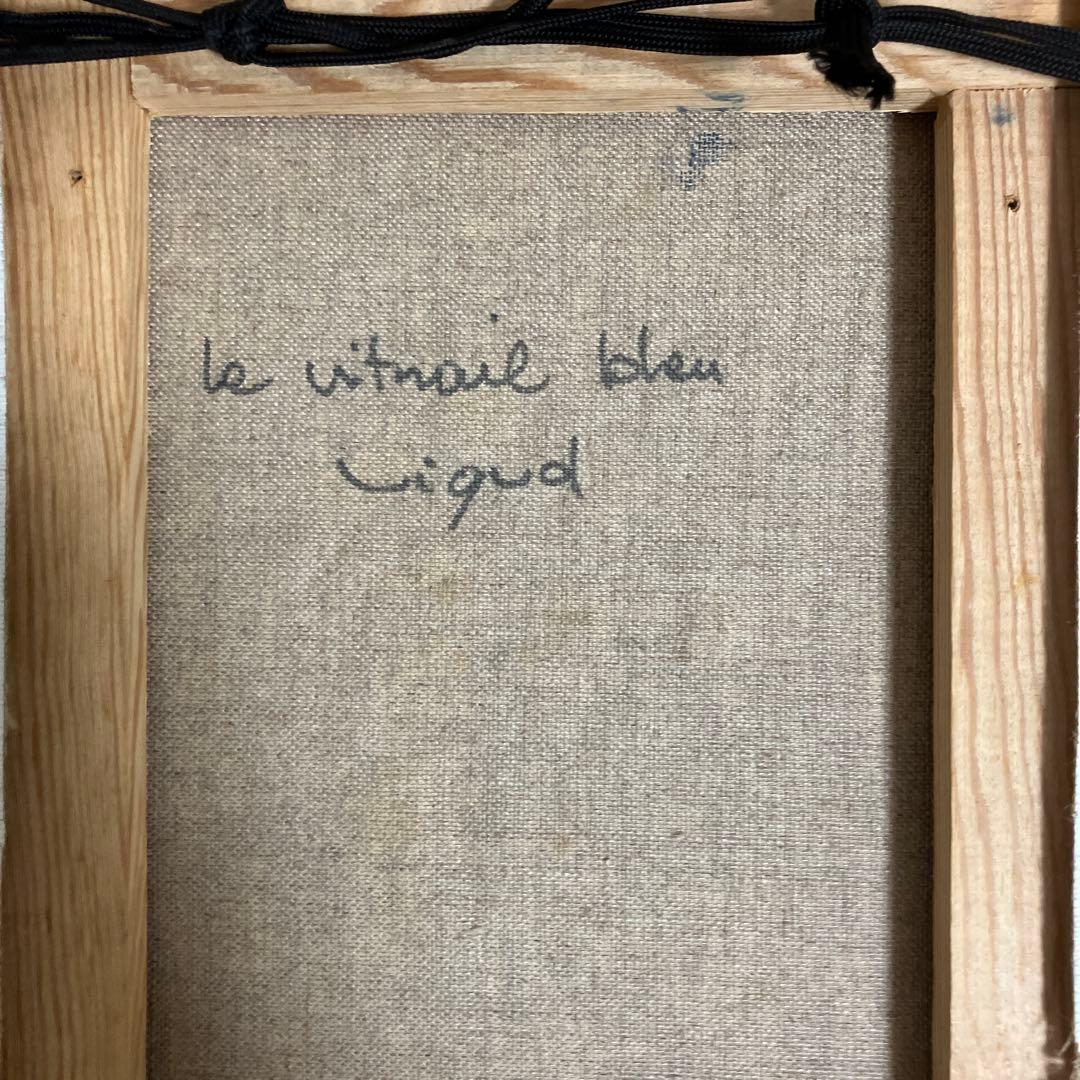 le vitrail bleu
Vigud